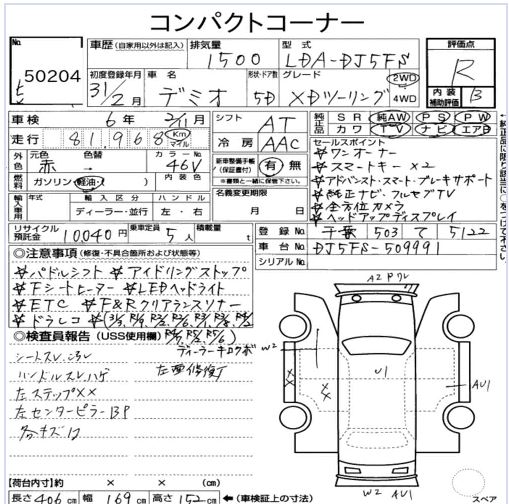 コンパクトコーナー
No. 50204
車歴 (自家用以外は記入) 排気量 1500 型式 LDA-DJ5FS 評価点 R
初度登録年月 31/2月 車名 デミオ 形状・ドア数 5D グレード XDツーリング 2WD 4WD 内装補助評価 B
車検 6年 2/11月 シフト AT 純正品 SR 純AW PS PW
カワ TV ナビ エアB
走行 81,968 Km マイル 冷房 AAC
セールスポイント
☆ワンオーナー
☆スマートキー×2
☆アドバンスト・スマート・ブレーキサポート
☆純正ナビ・フルセグTV
☆全方位カメラ
☆ヘッドアップディスプレイ
外色 元色 赤 色替 → カラーNo. 46V
新車整備手帳 (保証書付) 有・無
※書類と一緒に保管して下さい。
燃料 ガソリン・軽油・( ) 内装色
名義変更期限 月 日
輸入車用 年式 輸入区分 ディーラー・並行 ハンドル 左・右
リサイクル預託金 10,040円 乗車定員 5人 積載量
登録No. 千葉 503 て 5122
車台No. DJ5FS-509991
シリアルNo.
◎注意事項 (修復・不具合箇所および状態等)
☆パドルシフト ☆アイドリングストップ
☆Fシートヒーター ☆LEDヘッドライト
☆ETC ☆F&Rクリアランスソナー
☆ドラレコ
◎検査員報告 (USS使用欄)
ディーラーキロクボ
シートスレ、コゲ
ハンドルスレハゲ
左要修復了
左ステップXX
左センターピラーBP
各キズ
A2 Pワレ
W2
XX
U1
AU1
W2 AU1
スペア
【荷台内寸】約 × × (cm)
長さ 406 cm 幅 169 cm 高さ 152 cm ←(車検証上の寸法)